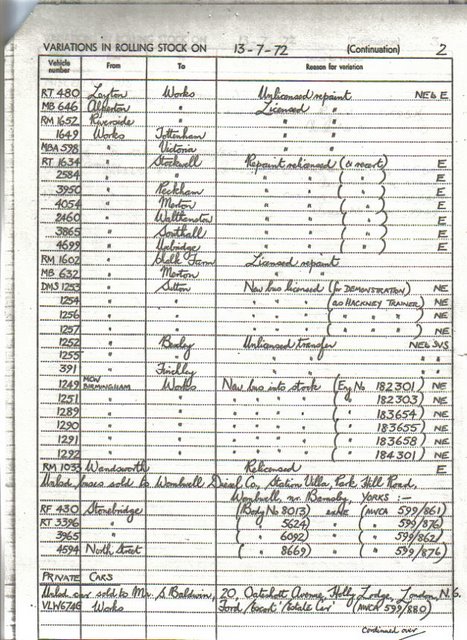 VARIATIONS IN ROLLING STOCK ON 13-7-72 (Continuation) 2
Vehicle number From To Reason for variation
RT 480 Leyton Works Unlicensed repaint NE6 E
MB 646 Alperton " Licensed "
RM 1652 Riverside " " "
1649 Works Tottenham " "
MBA 598 " Victoria " "
RT 1634 " Stockwell Repaint relicensed (& recert) E
2584 " " " " ( " " ) E
3950 " Peckham " " ( " " ) E
4054 " Merton " " ( " " ) E
2460 " Walthamstow " " ( " " ) E
3865 " Southall " " ( " " ) E
4699 " Uxbridge " " ( " " ) E
RM 1602 " Chalk Farm Licensed repaint
MB 632 " Merton " "
DMS 1253 " Sutton New bus licensed (for DEMONSTRATION) NE
1254 " " " " " (as HACKNEY TRAINER) NE
1256 " " " " " ( " " " ) NE
1257 " " " " " ( " " " ) NE
1252 " Bexley Unlicensed transfer NE6 SVS
1255 " " " " " "
391 " Finchley " " " "
1249 MCW BIRMINGHAM Works New bus into stock (Eng No 182301) NE
1251 " " " " " " ( " 182303) NE
1289 " " " " " " ( " 183654) NE
1290 " " " " " " ( " 183655) NE
1291 " " " " " " ( " 183658) NE
1292 " " " " " " ( " 184301) NE
RM 1033 Wandsworth Relicensed E
Unlsd. buses sold to Wombwell Diesel Co, Station Villa, Park Hill Road,
Wombwell nr. Barnsley, YORKS :-
RF 430 Stonebridge (Body No 8013) (AWCA 599/861)
RT 3396 " ( " 5624) " ( " 599/876)
3965 " ( " 6092) " ( " 599/862)
4594 North Street ( " 8669) " ( " 599/876)
PRIVATE CARS
Unlsd car sold to Mr. S. Baldwin, 20, Oakeshott Avenue, Holly Lodge, London, N.6.
VLW674G Works Ford Escort 'Estate Car' (AWCA 599/880)
Continued over